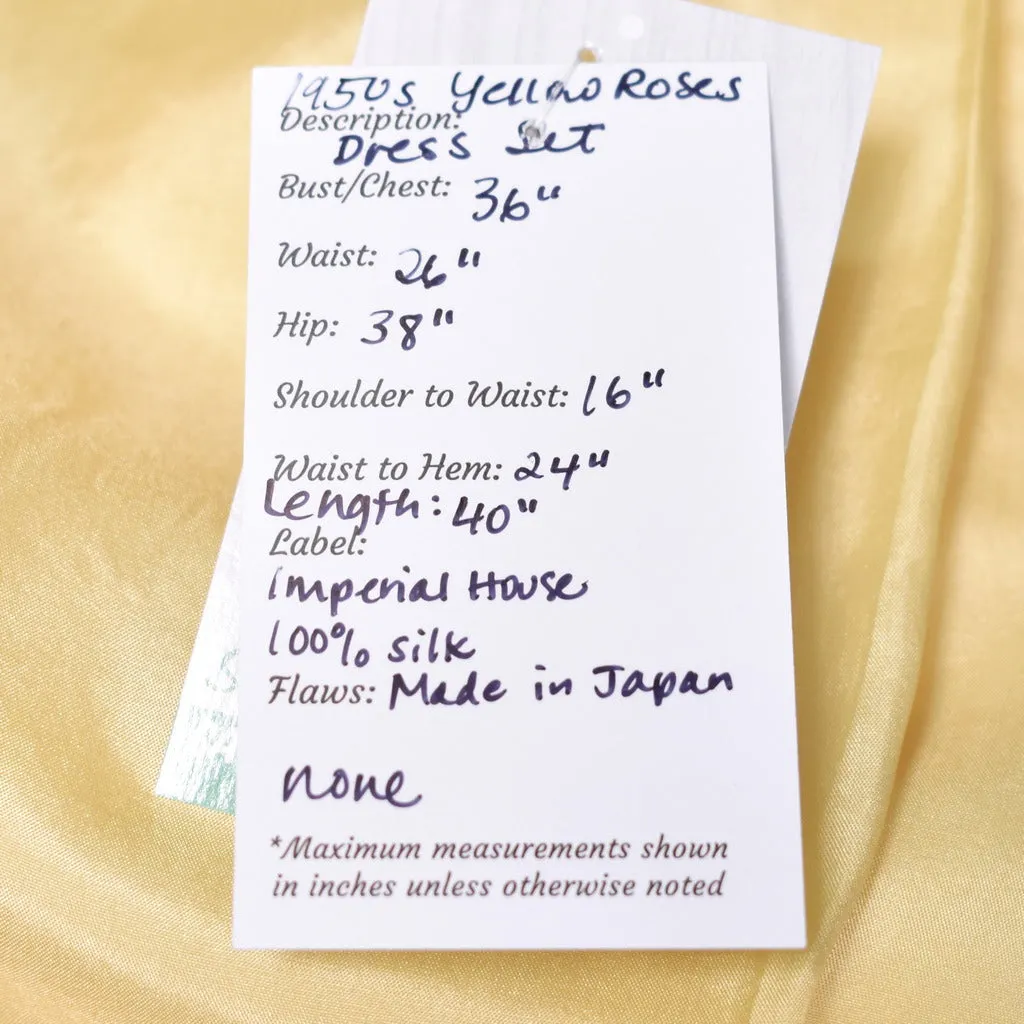 1950s Yellow Roses
Description:
Dress Set
Bust/Chest: 36"
Waist: 26"
Hip: 38"
Shoulder to Waist: 16"
Waist to Hem: 24"
Length: 40"
Label:
Imperial House
100% silk
Flaws: Made in Japan
none
*Maximum measurements shown
in inches unless otherwise noted